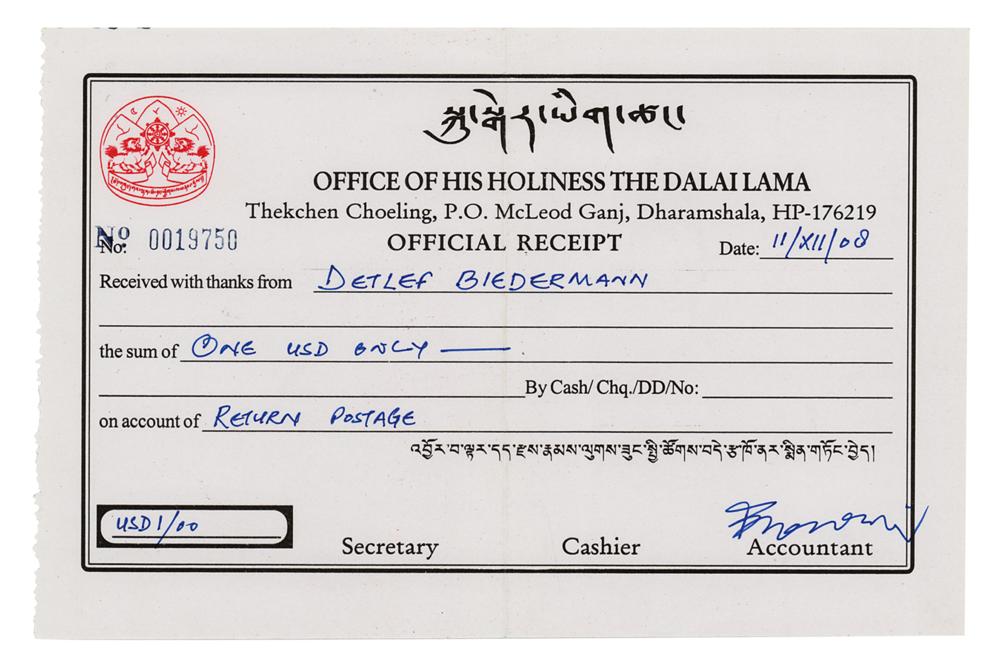 སྐུ་སྒེར་ཡིག་ཚང།
OFFICE OF HIS HOLINESS THE DALAI LAMA
Thekchen Choeling, P.O. McLeod Ganj, Dharamshala, HP-176219
No. Nº 0019750 OFFICIAL RECEIPT Date: 11/XII/08
Received with thanks from DETLEF BIEDERMANN
the sum of ONE USD ONLY
By Cash/ Chq./DD/No:
on account of RETURN POSTAGE
འབྱོར་བ་ལྟར་དད་རྫས་རྣམས་ལུགས་ཟུང་སྤྱི་ཚོགས་བདེ་རྩ་ཁོ་ནར་སྨིན་གཏོང་བྱེད།
USD 1/00
Secretary Cashier Accountant